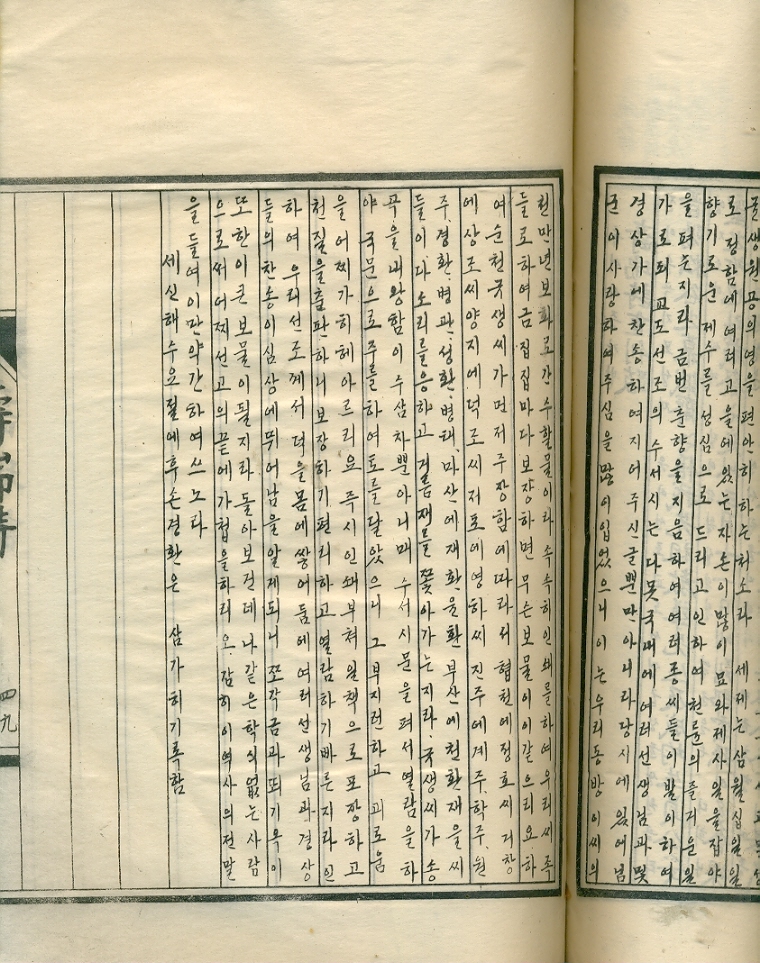 로 정함에 여러 고을에 있는 자손이 많이 묘와 제사일을 잡아
향기로운 제수를 성심으로 드리고 인하여 천륜의 즐거운 일
을 펴는지라 금번 춘향을 지음하여 여러 종씨들이 발이하여
가로되 교도 선조의 수서시는 다못 국내에 여러 선생님과 및
경상가에 찬송하여 지어주신 글뿐만 아니라 당시에 있어 넘
군이 사랑하여 주심을 많이 입었으니 이는 우리 동방 이씨의
천만년 보화로 간수할 물이라 속속히 인쇄를 하여 우리 씨족
들로 하여금 집집마다 보장하면 무슨 보물이 이 같으리오 하
여 순천 국생씨가 먼저 주장함에 따라서 협천에 정호씨 거창
에 상조씨 양지에 덕조씨 저포에 영하씨 진주에 계주 학주 원
주 경환 병관 성환 병태 마산에 재환 윤환 부산에 천환 재을 씨
들이다 소리를 응하고 걸음 재를 쫓아가는지라 국생씨가 송
곡을 내왕함이 수삼차뿐 아니며 수서시문을 펴서 열람을 하
야 국문으로 주를 하여 토를 달았으니 그 부지런하고 괴로움
을 어찌 가히 헤아르리요 즉시 인쇄부쳐 일책으로 포장하고
천질을 출판하니 보장하기 편리하고 열람하기 빠른지라 인
하여 으리 선조께서 덕을 몸에 쌓어 둠에 여러 선생님과 경상
들의 찬송이 심상에 뚜어남을 알게 되니 쪼각금과 띄기옥이
또한 이 큰 보물이 될지라 돌아보건데 나같은 학식 없는 사람
으로써 어찌 선고의 끝에 가첩을 하리오 감히 이 역사의 전말
을 들여 이만 약간하여 쓰노라
세신해 수요절에 후손 경환은 삼가히 기록함
四九